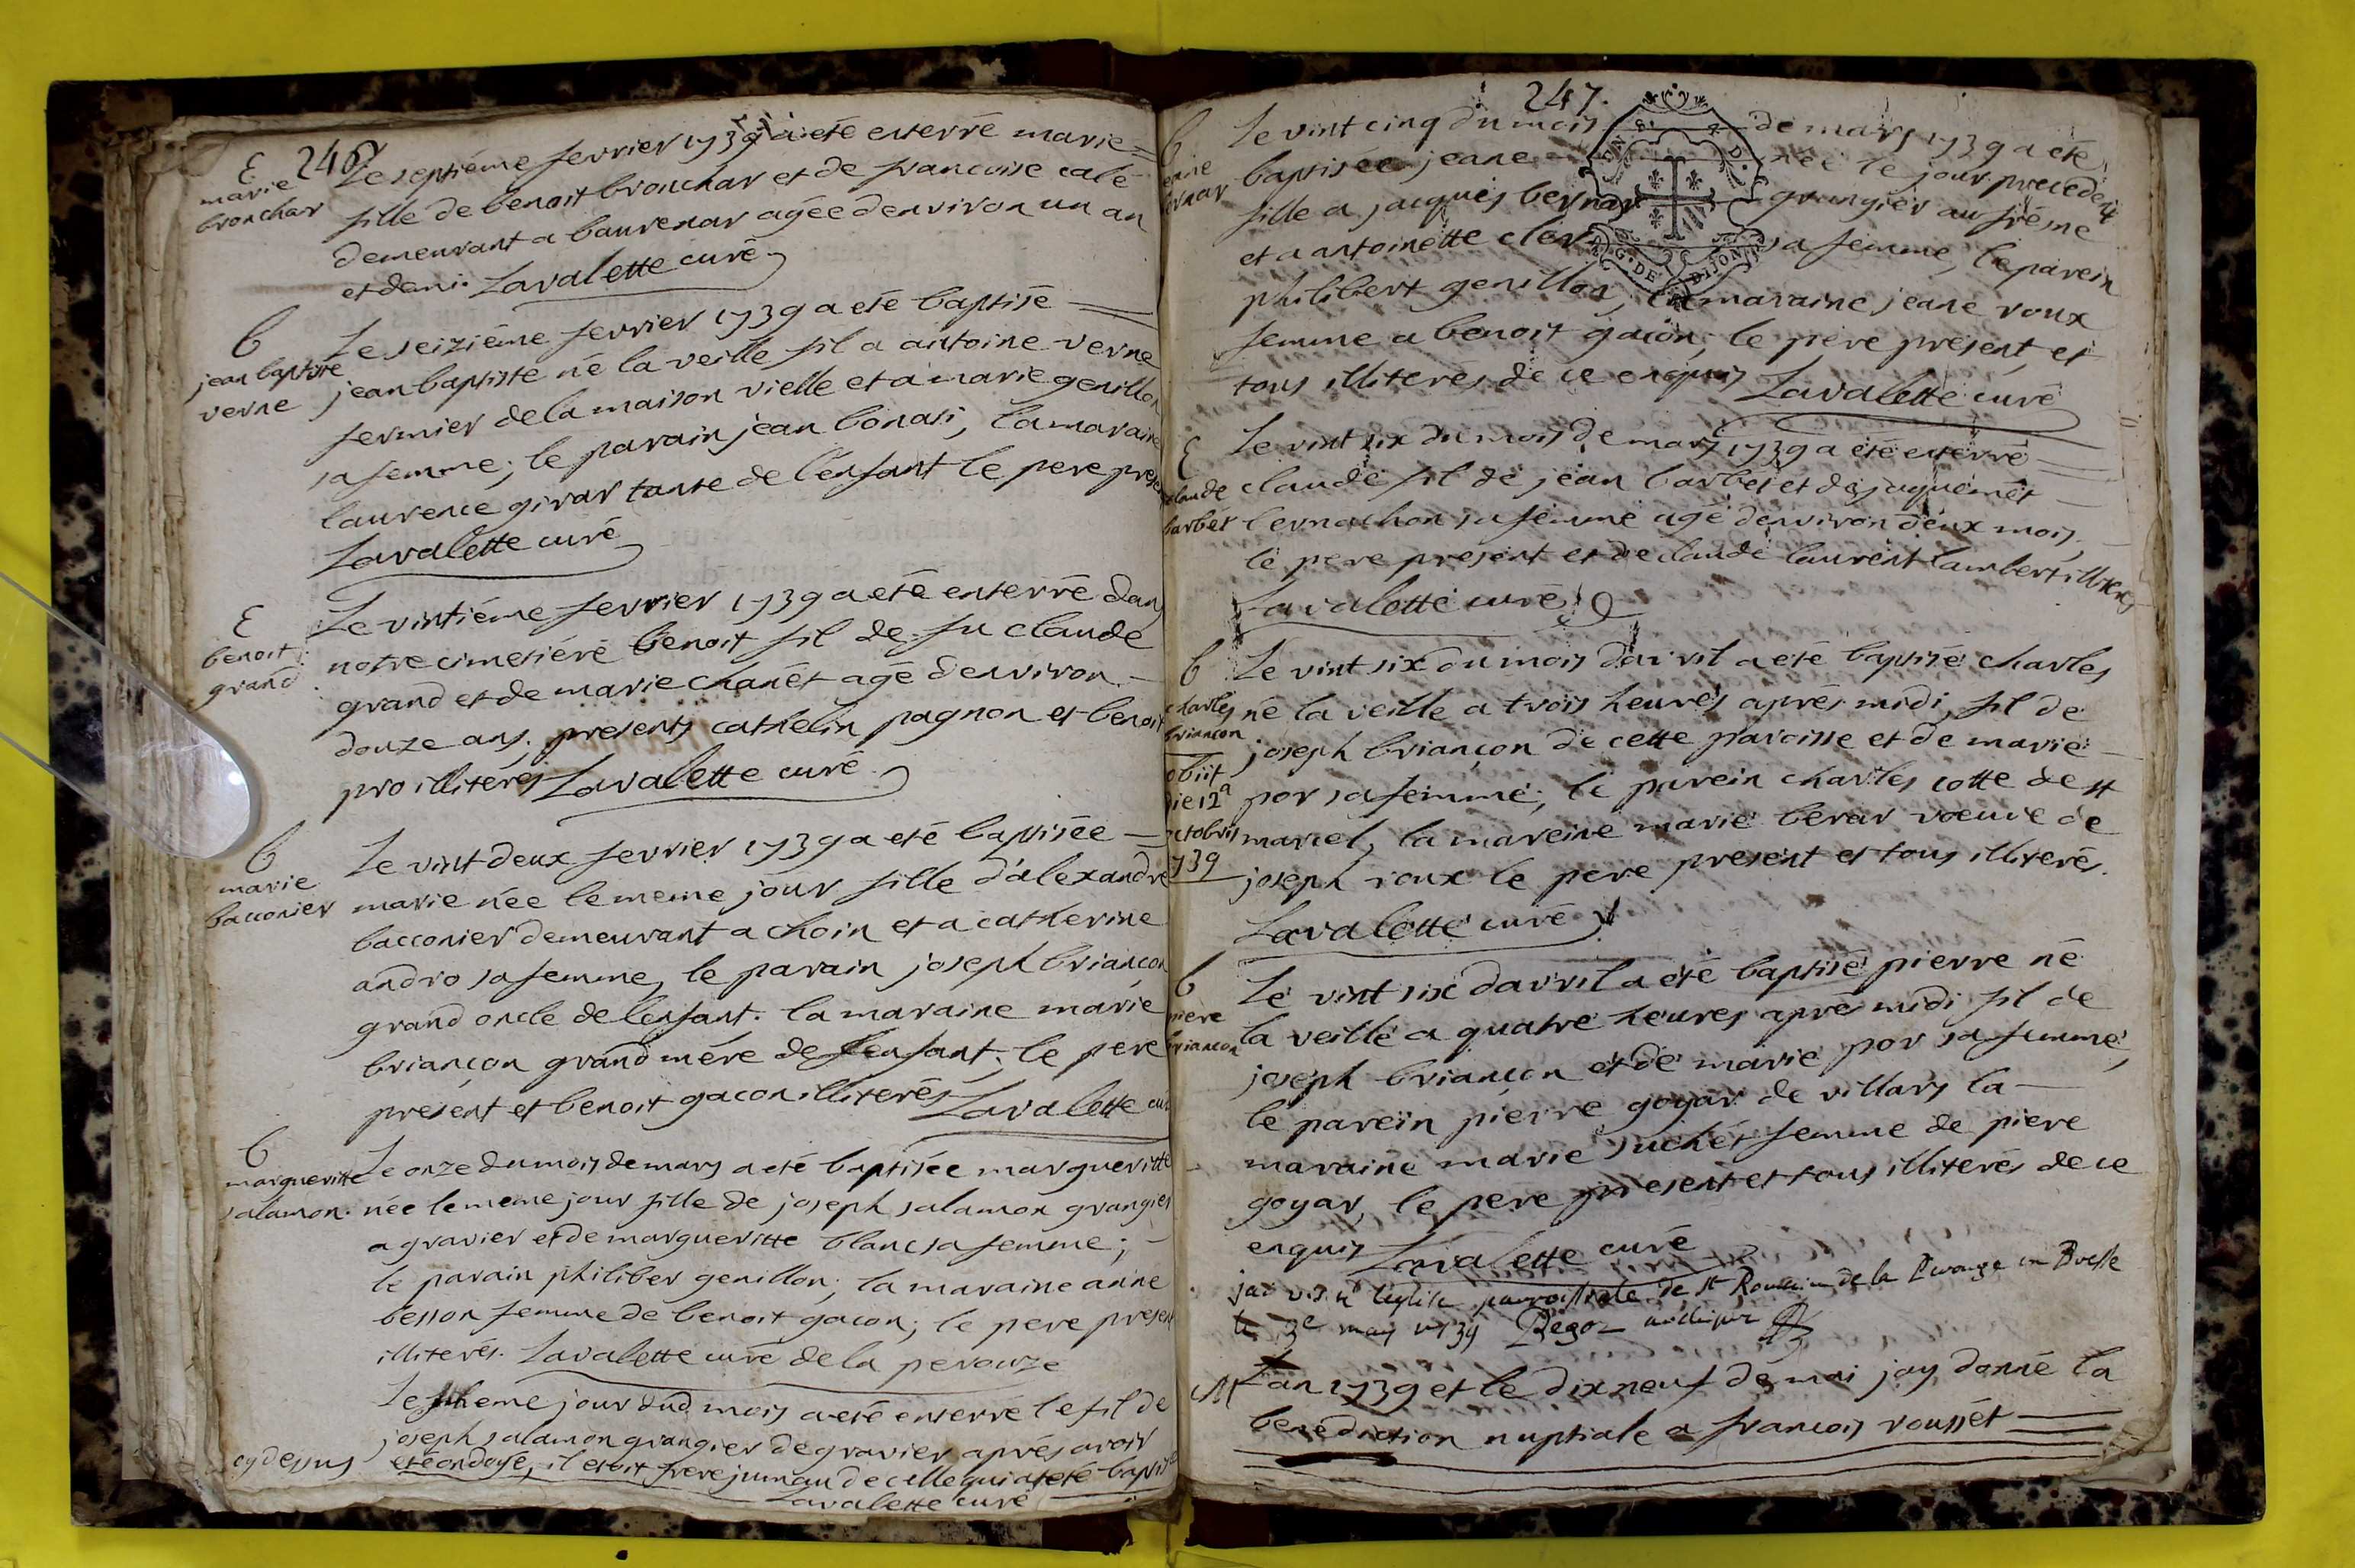 246
E
marie
bronchar
Le septiéme fevrier 1739 a eté enterré marie
fille de benoit bronchar et de francoise calé
demeurant a baurenar agée denviron un an
et demi. Lavalette curé
b
jean baptiste
verne
Le seiziéme fevrier 1739 a eté baptisé
jean baptiste né la veille fil a antoine verne
fermier de la maison vielle et a marie genillon
sa femme; le parain jean bonasi, la maraine
laurence girar tante de l'enfant le pere present
Lavalette curé
E
benoit
grand
Le vintiéme fevrier 1739 a eté enterré dans
notre cimetiére benoit fil de fu claude
grand et de marie chanét agé denviron
douze ans. presents cathelin pagnon et benoit
pro illiterés Lavalette curé
b
marie
bacconier
Le vint deux fevrier 1739 a eté baptisée
marie née le meme jour fille d'alexandre
bacconier demeurant a choin et a catherine
andro sa femme, le parain joseph briançon
grand oncle de lenfant. la maraine marie
briançon grand mére de lenfant. le pere
present et benoit gacon illiterés Lavalette curé
b
margueritte
salamon.
Le onze du mois de mars a eté baptisée margueritte
née le meme jour fille de joseph salamon grangier
a gravier et de margueritte blanc sa femme;
le parain philiber genillon; la maraine anne
besson femme de benoit gacon; le pere present
illiterés. Lavalette curé de la perouze
Le meme jour dud mois a eté enterré le fil de
joseph salamon grangier de gravier aprés avoir
eté ondoyé, il etoit frere jumau de celle qui a eté baptisée
cy dessus
Lavalette curé
247.
G. DE DIJON
b
jeane
bernar
Le vint cinq du mois de mars 1739 a eté
baptisée jeane née le jour precedent
fille a jacques bernar grangier au fréme
et a antoinette cler sa femme, le parein
philibert genillon, la maraine jeane roux
femme a benoit gacon, le pere present, et
tous illiteres de ce enquis Lavalette curé
E
claude
barbét
Le vint six du mois de mars 1739 a eté enterré
claude fil de jean barbet et de jaquemét
bernachon sa femme agé denviron deux mois,
le pere present et de claude laurent lambert illiterés
Lavalette curé
b
charles
briancon
obiit
die 12a
octobris
1739
Le vint six du mois davril a eté baptisé charles
né la veille a trois heures aprés midi, fil de
joseph briançon de cette paroisse et de marie
por sa femme; le parein charles cotte de st
marcel, la mareine marie berar voeuve de
joseph roux le pere present et tous illiterés.
Lavalette curé
b
piere
briancon
Le vint six davril a eté baptisé pierre né
la veille a quatre heures aprés midi fil de
joseph briancon et de marie por sa femme,
le parein pierre goyar de villars la
maraine marie suchét femme de piere
goyar, le pere present et tous illiterés de ce
enquis Lavalette curé
jai visité leglise parroissiale de st Romain de la Perouze en Bresse
le 3e may 1739
M
Lan 1739 et le dix neuf de mai jay donné la
benediction nuptiale a francois roussét